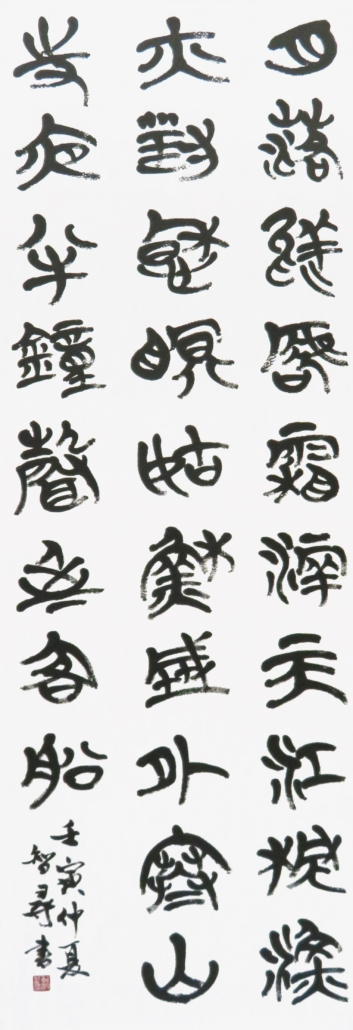 月落烏啼霜滿天江楓漁
火對愁眠姑蘇城外寒山
寺夜半鐘聲到客船
壬寅仲夏
智尋書